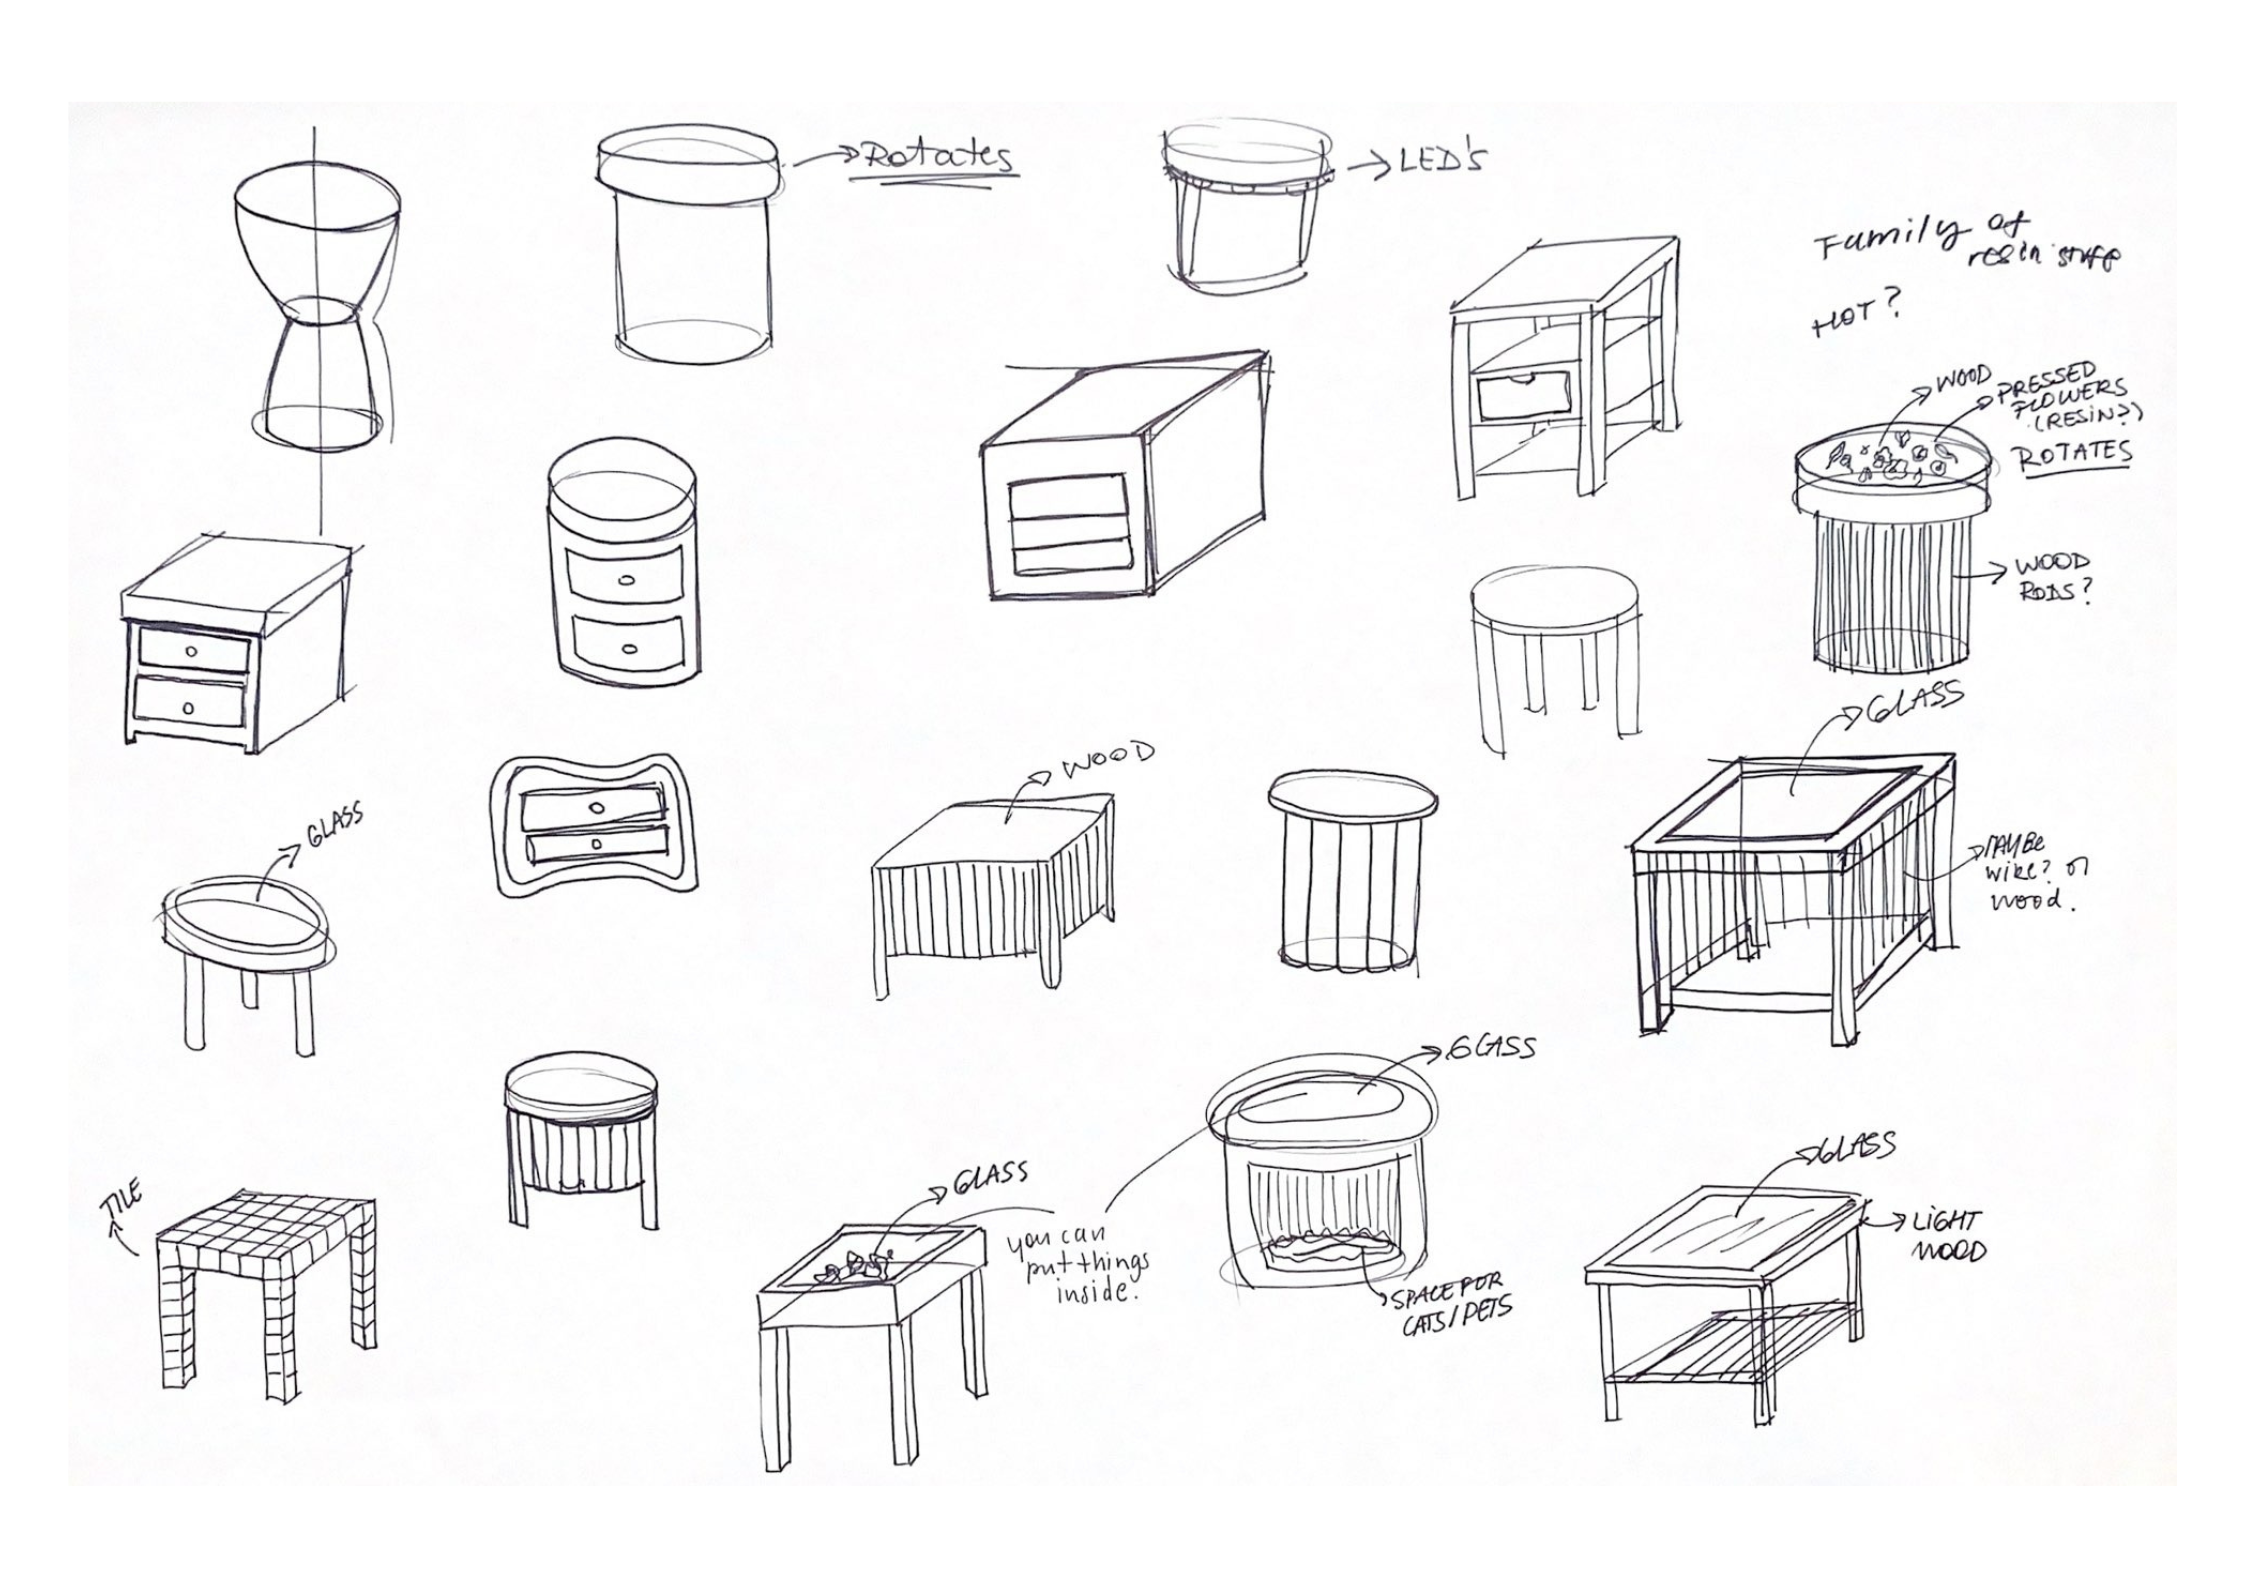 Rotates
LED's
Family of
resin stuff
HOT?
WOOD
PRESSED
FLOWERS
(RESIN?)
ROTATES
WOOD
RODS?
GLASS
WOOD
GLASS
MAYBE
wire? or
wood.
GLASS
GLASS
GLASS
TILE
you can
put things
inside.
LIGHT
WOOD
SPACE FOR
CATS/PETS